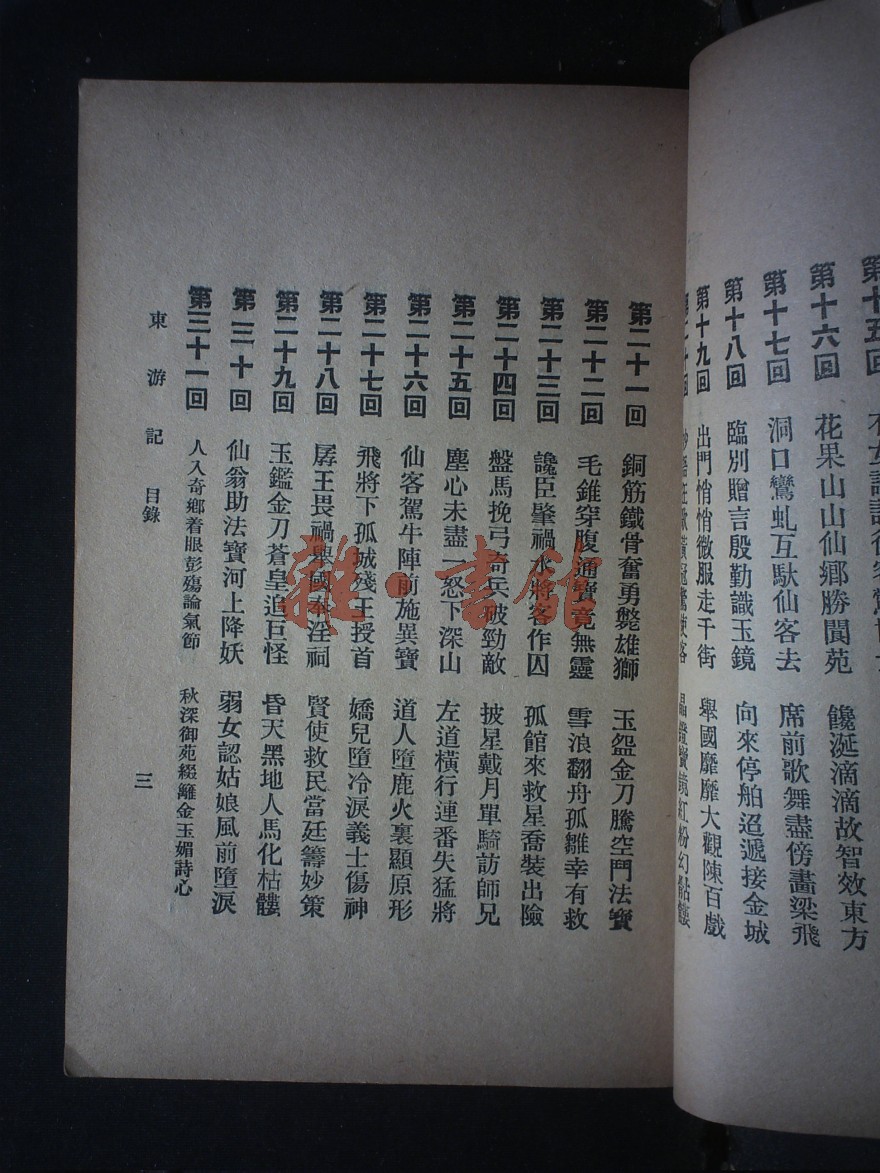 第十五回
第十六回 花果山山仙鄉勝閬苑 饞涎滴滴故智效東方
第十七回 洞口鸞虬互馱仙客去 席前歌舞盡傍畫梁飛
第十八回 臨別贈言殷勤識玉鏡 向來停舶迢遞接金城
第十九回 出門悄悄微服走千街 舉國靡靡大觀陳百戲
第二十回
第二十一回 銅筋鐵骨奮勇斃雄獅 玉盌金刀騰空鬥法寶
第二十二回 毛錐穿腹通寶竟無靈 雪浪翻舟孤雛幸有救
第二十三回 讒臣肇禍水將客作囚 孤館來救星喬裝出險
第二十四回 盤馬挽弓奇兵破勁敵 披星戴月單騎訪師兄
第二十五回 塵心未盡一怒下深山 左道橫行連番失猛將
第二十六回 仙客駕牛陣前施異寶 道人墮鹿火裏顯原形
第二十七回 飛將下孤城殘王授首 嬌兒墮冷淚義士傷神
第二十八回 孱王畏禍舉國奉淫祠 賢使救民當廷籌妙策
第二十九回 玉鑑金刀蒼皇追巨怪 昏天黑地人馬化枯髏
第三十回 仙翁助法寶河上降妖 弱女認姑娘風前墮淚
第三十一回 人入奇鄉着眼彭殤論氣節 秋深御苑綴籬金玉媚詩心
東游記 目錄
三
雜·書館